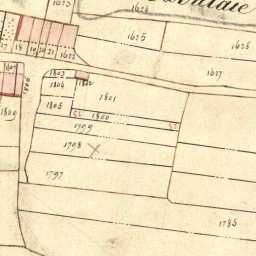 1623
1624
1625
1626
17
18
19
20
21
1622
1627
1803
1802
1804
1801
1805
1800
1799
1798
1797
1785